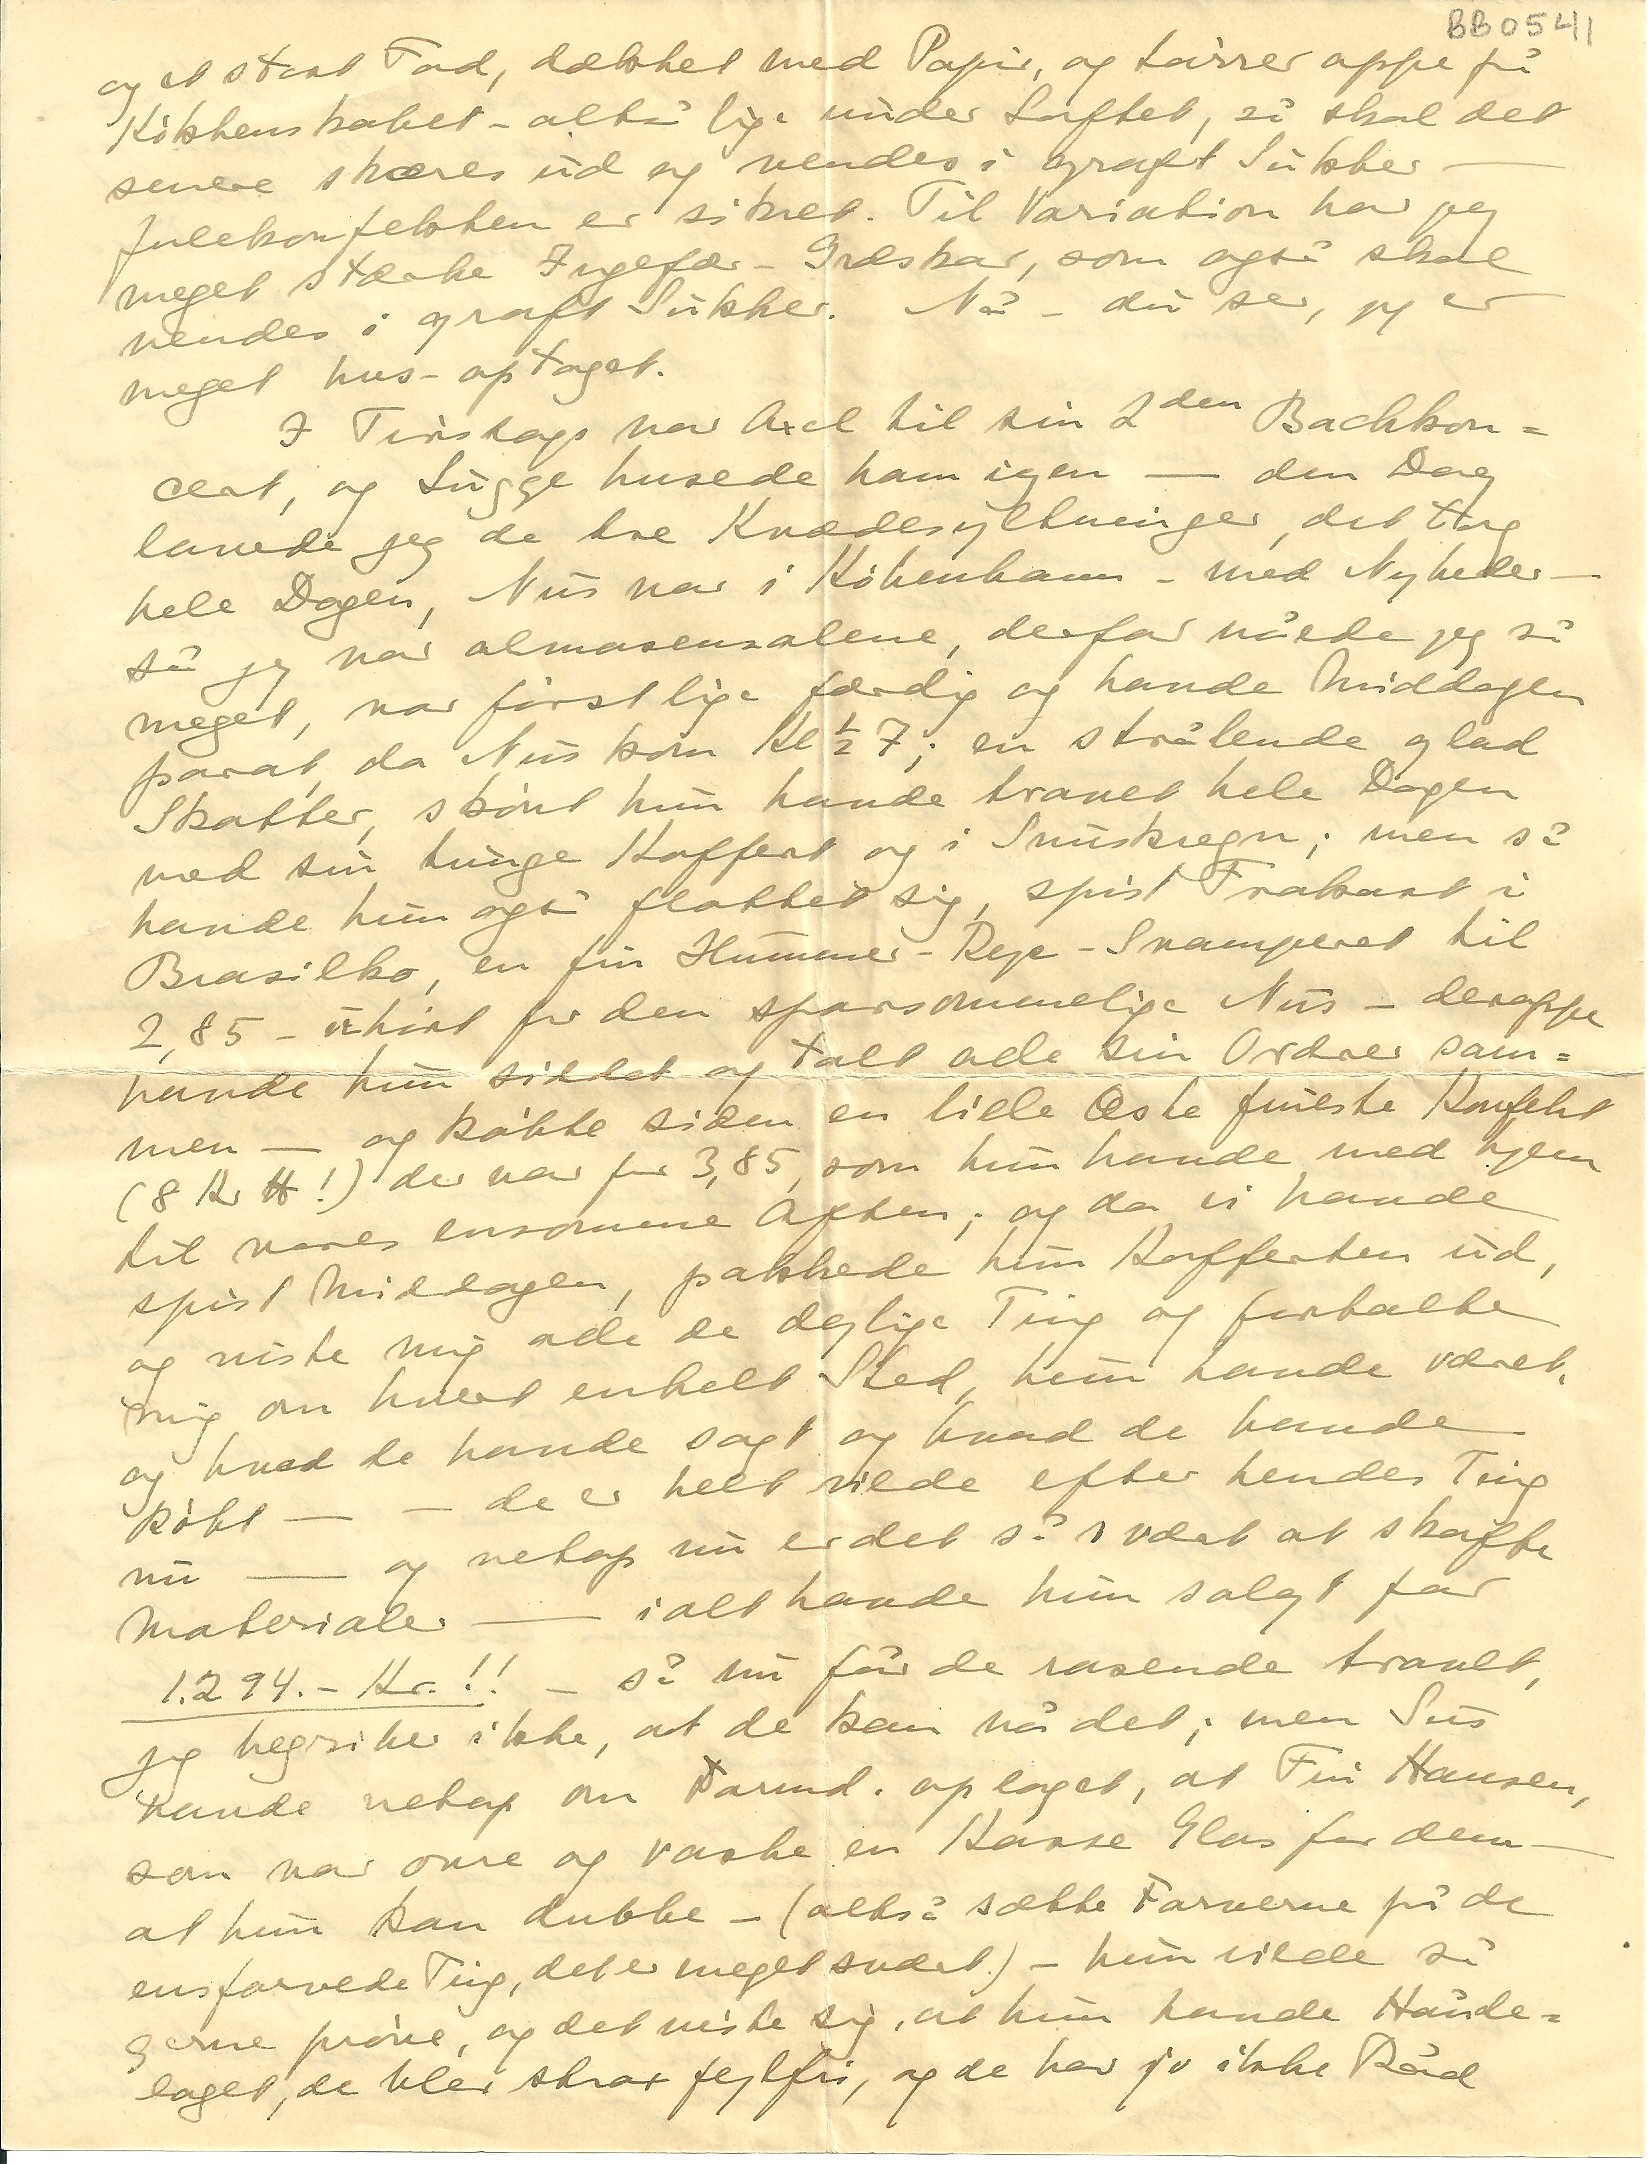 BB0541
og et stort Fad, dækket med Papir, og tørrer oppe på
Køkkenskabet - altså lige under Loftet, så skal det
senere skæres ud og vendes i groft Sukker —
Julekonfekten er sikret. Til Variation har jeg
meget stærke Ingefær-Græskar, som også skal
vendes i groft Sukker. Nå - du ser, jeg er
meget hus-optaget.
I Tirsdags var Axel til sin 2den Bachkon=
cert, og Lugge husede ham igen — den Dag
lavede jeg de tre Kvædesyltninger, det tog
hele Dagen, Nus var i København - med Nyheder —
så jeg var alenasene, derfor nåede jeg så
meget, var først lige færdig og havde Middagen
parat, da Nus kom Kl ½ 7; en strålende glad
Skatter, skønt hun havde travet hele Dagen
med sin tunge Koffert og i Snuskregn; men så
havde hun også flottet sig, spist Frokost i
Brasilko, en fin Hummer-Reje-Svamperet til
2,85 - uhørt for den sparsommelige Nus - deroppe
havde hun siddet og talt alle sin Ordrer sam=
men — og købte siden en lille Æske fineste Konfekt
(8 Kr ℔!) der var for 3,85, som hun havde med hjem
til vores ensomme Aften; og da vi havde
spist Middagen, pakkede hun Kofferten ud,
og viste mig alle de dejlige Ting og fortalte
mig om hvert enkelt Sted, hun havde været,
og hvad de havde sagt og hvad de havde
købt — - de er helt vilde efter hendes Ting
nu — og netop nu er det så svært at skaffe
Materialer — ialt havde hun solgt for
1.294.- Kr.!! - så nu får de rasende travlt,
jeg begriber ikke, at de kan nå det; men Sus
havde netop om Formd. opdaget, at Fru Hansen,
som var ovre og vaske en Kasse Glas for dem —
at hun kan dubbe - (altså sætte Farverne på de
ensfarvede Ting, det er meget svært) - hun vilde så
gerne prøve, og det viste sig, at hun havde Hånde=
laget, de blev strax fejlfri, og de har jo ikke Råd